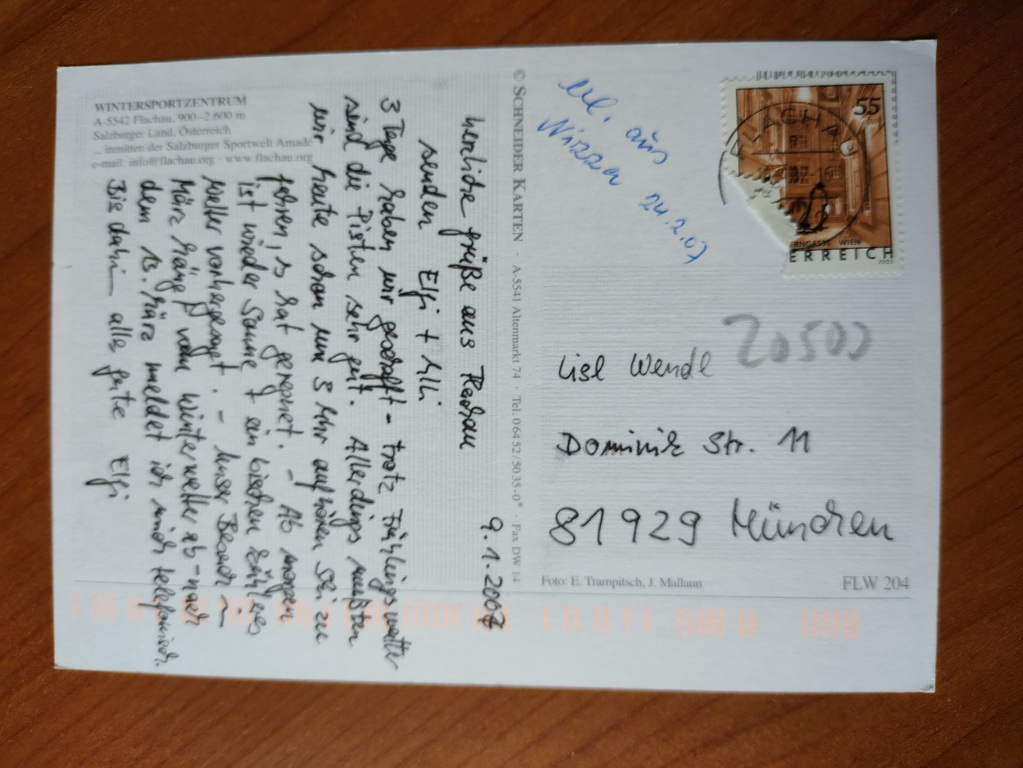 WINTERSPORTZENTRUM
A-5542 Flachau, 900–2.600 m
Salzburger Land, Österreich
... inmitten der Salzburger Sportwelt Amadé
e-mail: info@flachau.org · www.flachau.org
9.1.2007
herzliche Grüße aus Flachau
senden Elfi + Alli
3 Tage haben wir geschafft – trotz Frühlingswetter
sind die Pisten sehr gut. Allerdings mußten
wir heute schon um 3 Uhr aufhören Ski zu
fahren, es hat geregnet. – Ab morgen
ist wieder Sonne + ein bischen kühleres
Wetter vorhergesagt. – Unser Besuch in
März hängt vom Winterwetter ab – nach
dem 13. März meldet ich mich telefonisch.
Bis dahin alles gute Elfi
© SCHNEIDER KARTEN · A-5541 Altenmarkt 74 · Tel. 06452/5035-0* · Fax DW 14
aus
Nizza 24.2.07
55
FLACHAU
WIEN
ERREICH
20500
Lisl Wendl
Dominik Str. 11
81929 München
Foto: E. Trampitsch, J. Mallaun
FLW 204